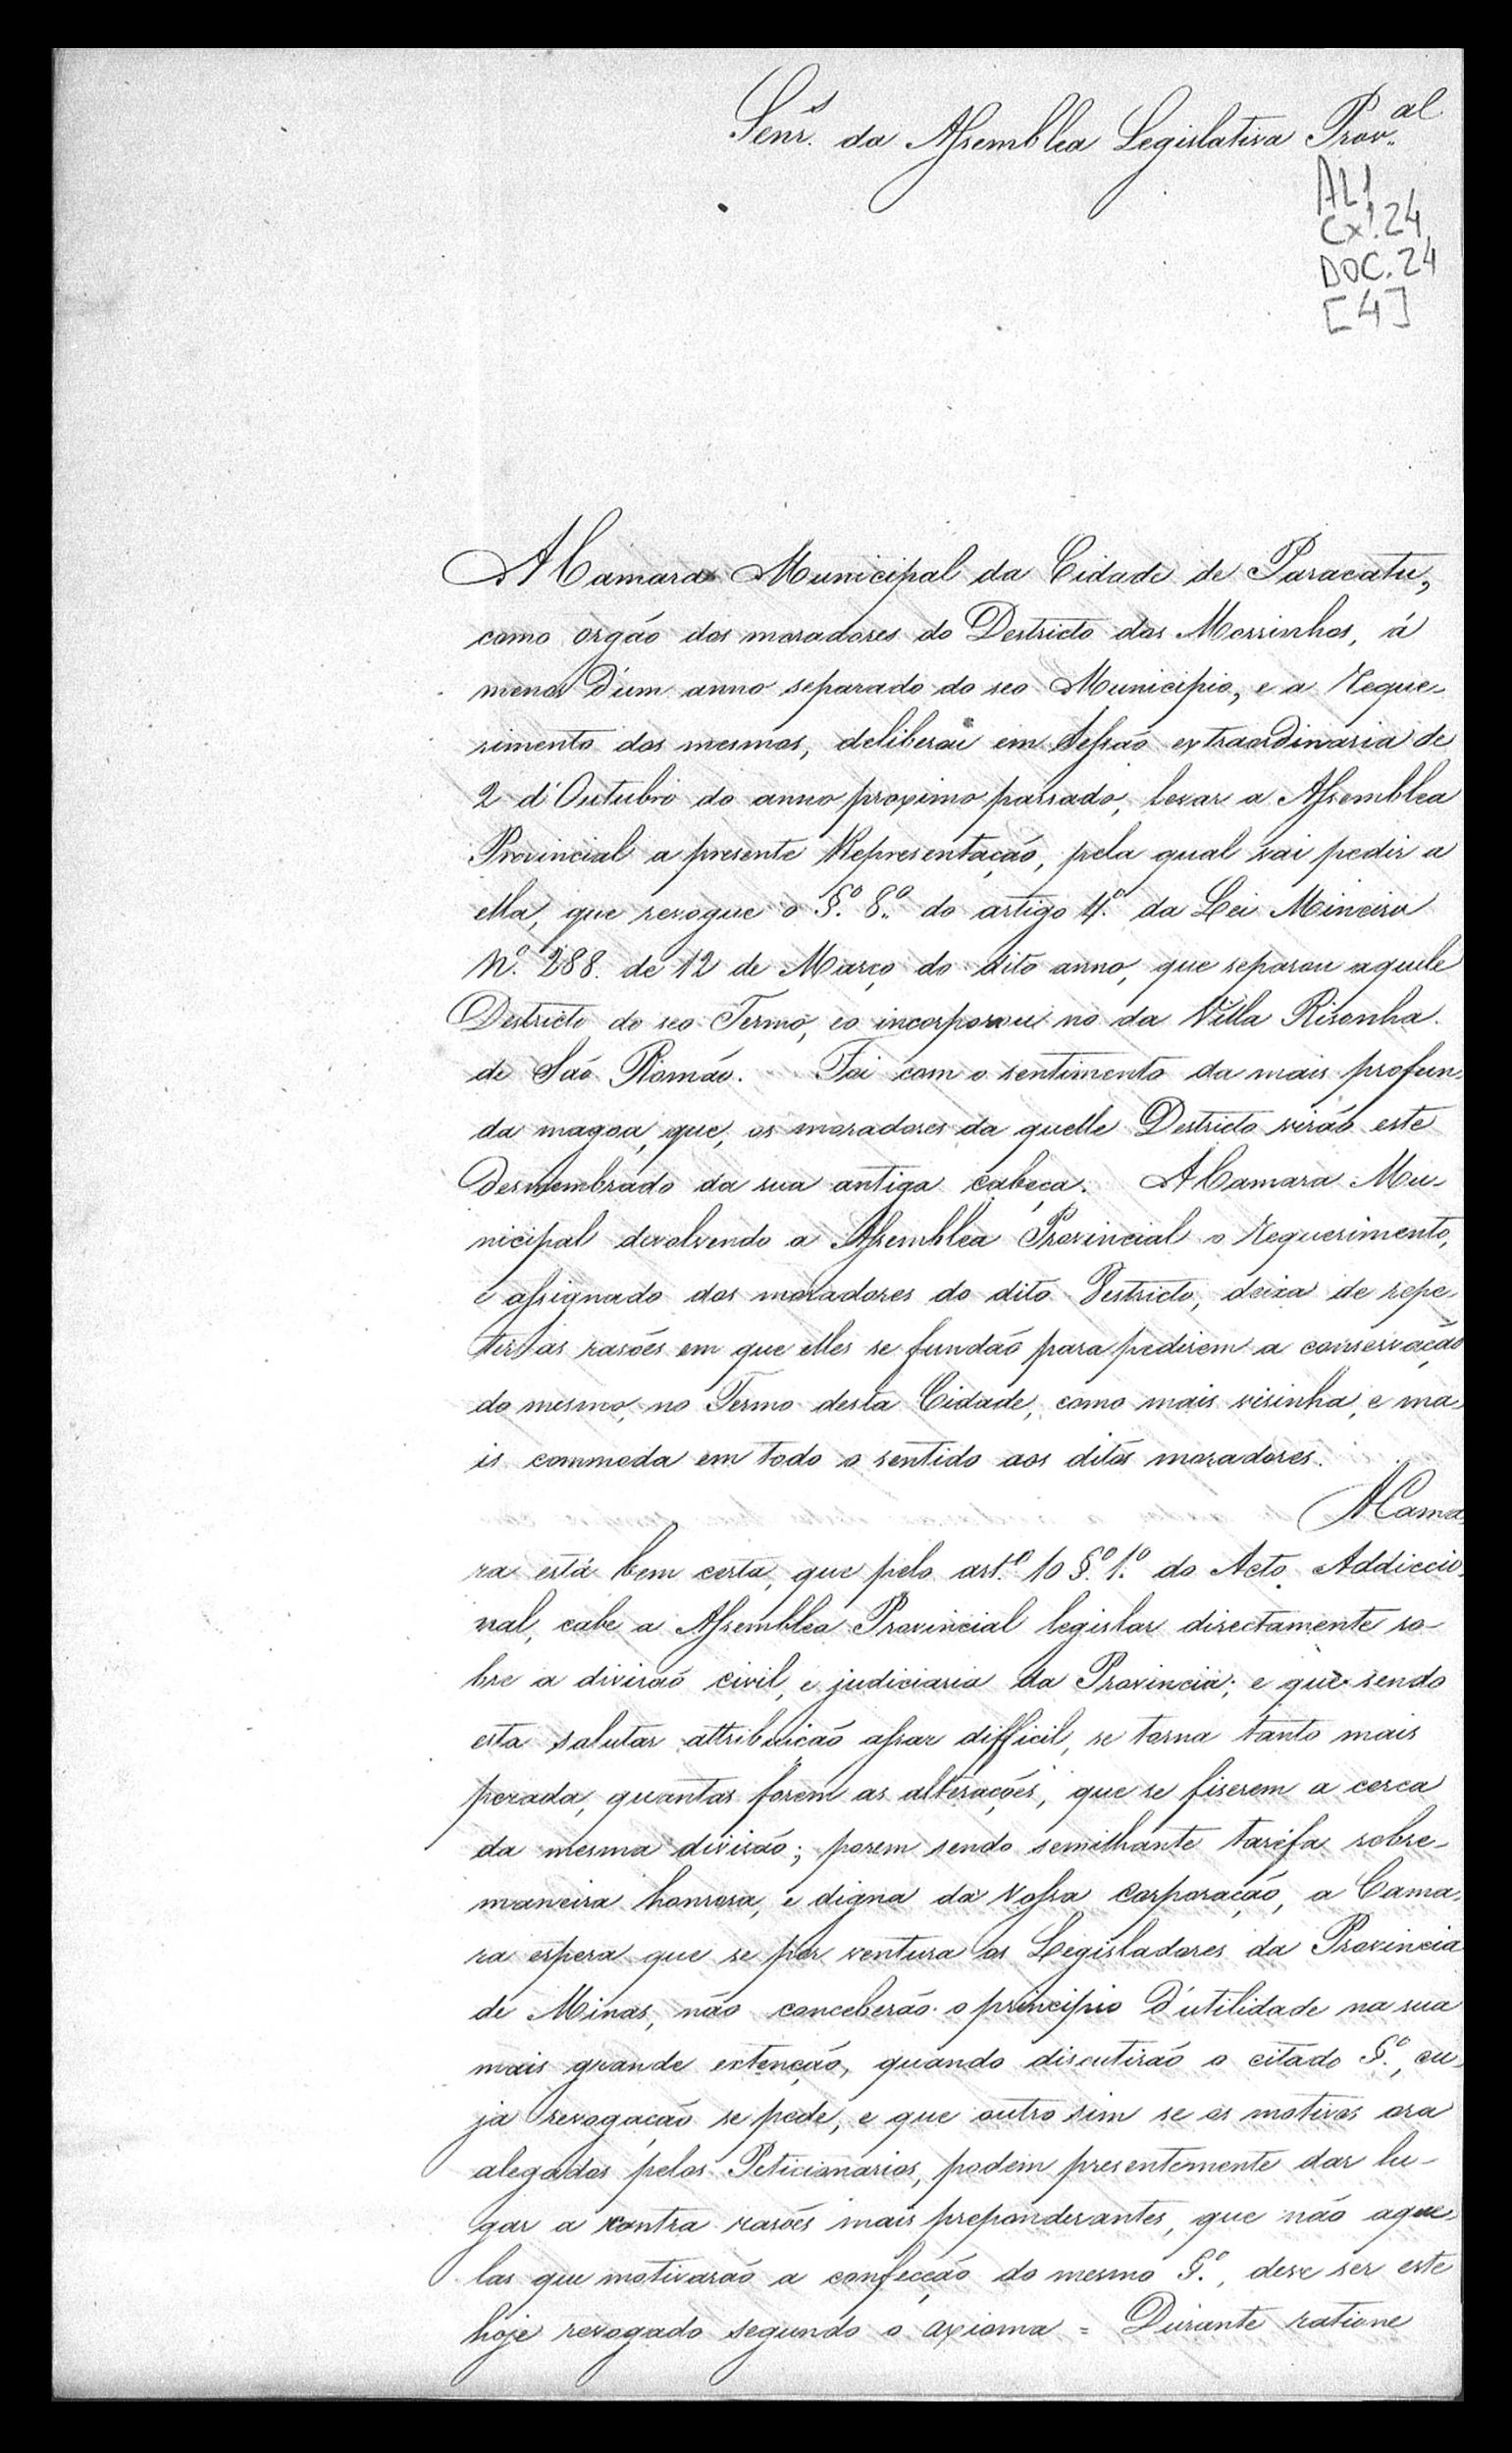 Senr.s da Assemblea Legislativa Prov.al
AL1
Cx.24
DOC.24
[4]
A Camara Municipal da Cidade de Paracatu,
como orgão dos moradores do Destricto dos Morrinhos, á
menos d'um anno separado do seo Municipio, e a reque-
rimento dos mesmos, deliberou em Sessão extraordinaria de
2 d'Outubro do anno proximo passado, levar a Assemblea
Provincial a presente Representação, pela qual vai pedir a
ella, que revogue o §.º 8.º do artigo 4.º da Lei Mineira
N.º 288. de 12 de Março do dito anno, que separou aquele
Destricto do seo Termo, eo incorporou no da Villa Risonha
de São Romão. Foi com o sentimento da mais profun-
da magoa, que, os moradores da quelle Destricto virão este
desmembrado da sua antiga cabeça. A Camara Mu-
nicipal devolvendo a Assemblea Provincial o requerimento,
e assignado dos moradores do dito Destricto, deixa de repe-
tir as rasões em que elles se fundão para pedirem a conservação
do mesmo, no Termo desta Cidade, como mais visinha, e ma-
is commoda em todo o sentido aos ditos moradores.
A Cama-
ra está bem certa, que pelo art.º 10 §.º 1.º do Acto Addiccio-
nal, cabe a Assemblea Provincial legislar directamente so-
bre a divisão civil, e judiciaria da Provincia; e que sendo
esta salutar attribuição assas difficil, se torna tanto mais
pezada, quantas forem as alterações, que se fiserem a cerca
da mesma divisão; porem sendo semilhante tarefa sobre-
maneira honrosa, e digna da Vossa Corporação, a Cama-
ra espera que se por ventura os Legisladores da Provincia
de Minas, não conceberão o principio d'utilidade na sua
mais grande extenção, quando discutirão o citado §.º, cu-
ja revogação se pede, e que outro sim se os motivos ora
alegados pelos Peticionarios, podem presentemente dar lu-
gar a contra rasões mais preponderantes, que não aquel-
las que motivarão a confecção do mesmo §.º, deve ser este
hoje revogado segundo o axioma = Durante ratione